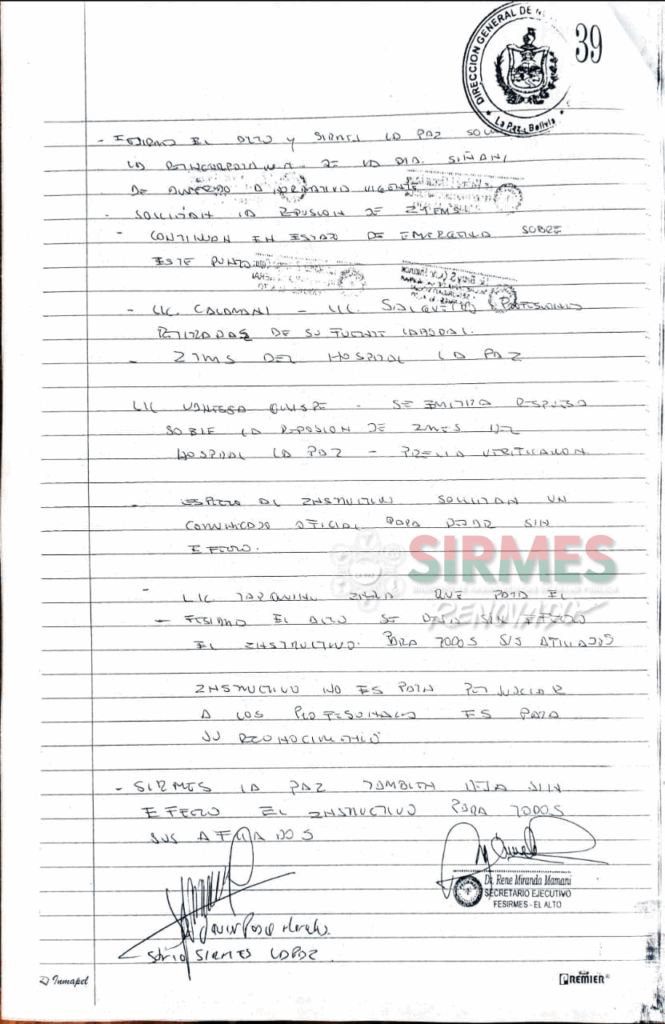 DIRECCION GENERAL DE
La Paz - Bolivia
39
- FESIRMES EL ALTO Y SIRMES LA PAZ
LA REINCORPORACION DE LA DRA. SIÑANI
DE ACUERDO A NORMATIVA VIGENTE
- SOLICITAN LA REPOSION DE 24 EMS
- CONTINUAN EN ESTADO DE EMERGENCIA SOBRE
ESTE PUNTO
- LIC. CALAMANI - LIC. SALGUEIRO PROFESIONALES
RETIRADAS DE SU FUENTE LABORAL.
- ITEMS DEL HOSPITAL LA PAZ
LIC VANESSA QUISPE - SE EMITIRA RESPUESTA
SOBRE LA REPOSION DE ITEMS DEL
HOSPITAL LA PAZ - PREVIA VERIFICACION
- RESPECTO AL INSTRUCTIVO SOLICITAN UN
COMUNICADO OFICIAL PARA DEJAR SIN
EFECTO.
SIRMES
RENOVADO
- LIC TARQUINO QUE PARA EL
- FESIRMES EL ALTO SE DEJA SIN EFECTO
EL INSTRUCTIVO PARA TODOS SUS AFILIADOS
INSTRUCTIVO NO ES PARA PERJUDICAR
A LOS PROFESIONALES ES PARA
SU RECONOCIMIENTO
- SIRMES LA PAZ TAMBIEN DEJA SIN
EFECTO EL INSTRUCTIVO PARA TODOS
SUS AFILIADOS
Dr. Rene Miranda Mamani
SECRETARIO EJECUTIVO
FESIRMES - EL ALTO
SIRMES LA PAZ
Inmapel
PREMIER®